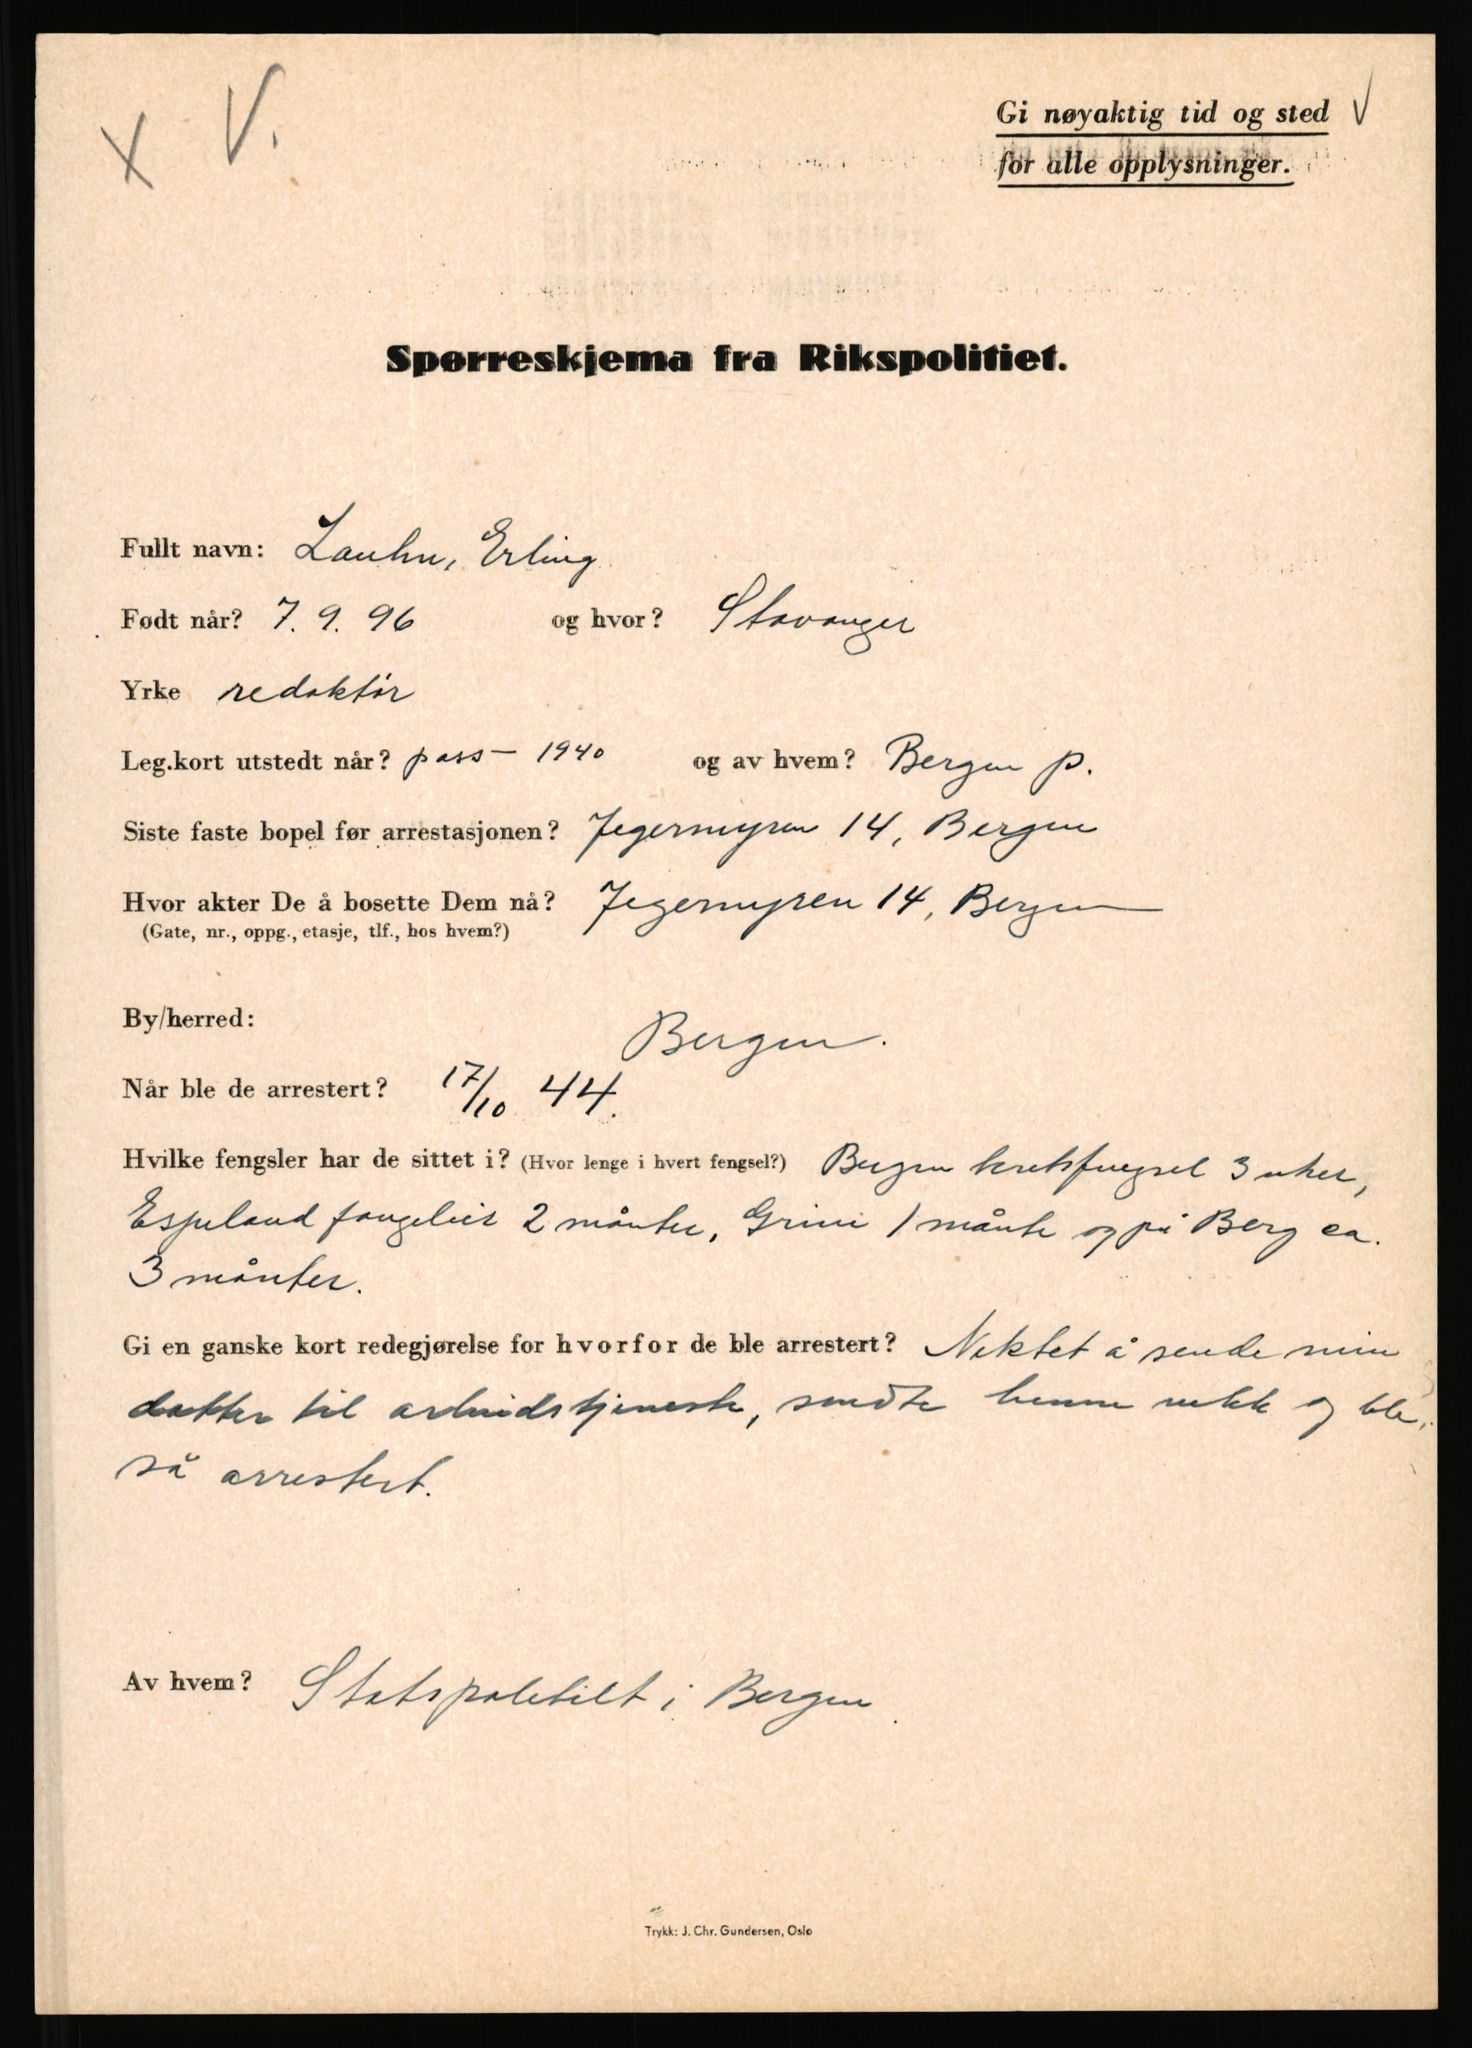 X V.
Gi nøyaktig tid og sted V
for alle opplysninger.
Spørreskjema fra Rikspolitiet.
Fullt navn: Lauhn, Erling
Født når? 7. 9. 96 og hvor? Stavanger
Yrke redaktør
Leg.kort utstedt når? pass — 1940 og av hvem? Bergen p.
Siste faste bopel før arrestasjonen? Jegermyren 14, Bergen
Hvor akter De å bosette Dem nå? Jegermyren 14, Bergen
(Gate, nr., oppg., etasje, tlf., hos hvem?)
By/herred: Bergen.
Når ble de arrestert? 17/10 44.
Hvilke fengsler har de sittet i? (Hvor lenge i hvert fengsel?) Bergen kretsfengsel 3 uker,
Espeland fangeleir 2 månter, Grini 1 månte og på Berg ca.
3 månter.
Gi en ganske kort redegjørelse for hvorfor de ble arrestert? Nektet å sende min
datter til arbeidstjeneste, sendte henne vekk og ble
så arrestert.
Av hvem? Statspolitiet i Bergen.
Trykk: J. Chr. Gundersen, Oslo